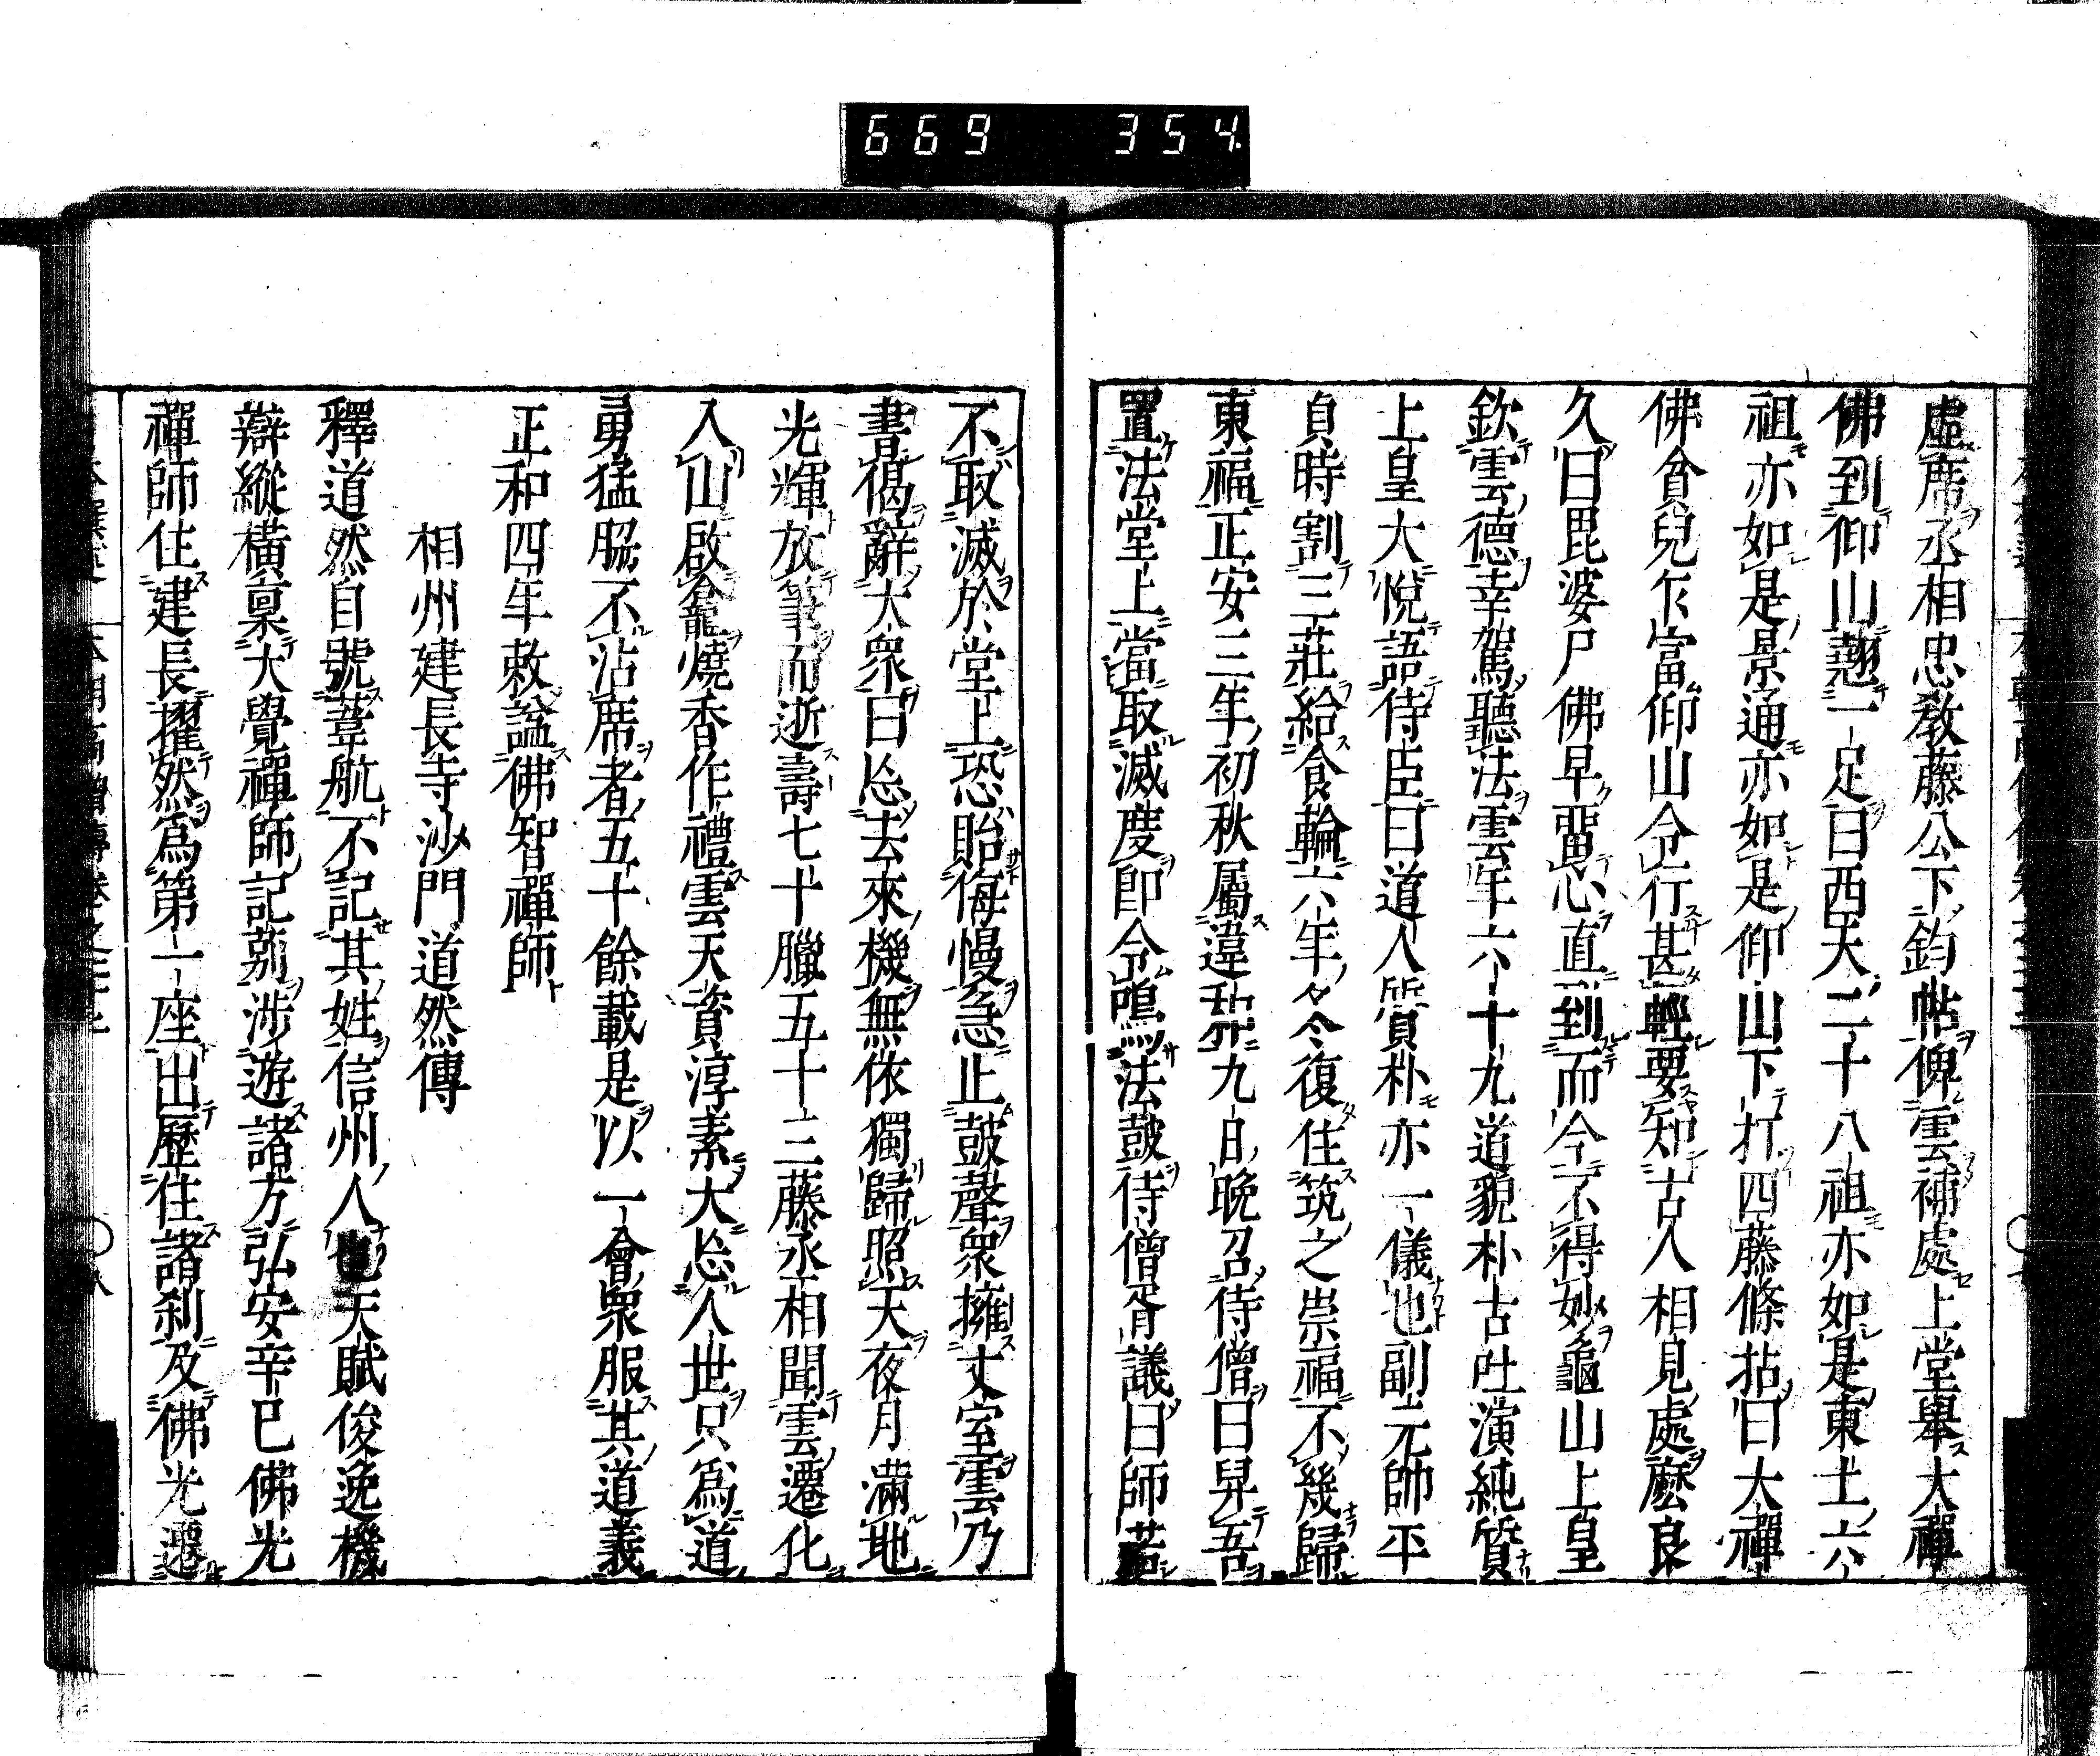 669 354
虛席丞相忠教藤公下鈞帖俾雲補處上堂舉大禪
佛到仰山翹一足曰西天二十八祖亦如是東土六
祖亦如是景通亦如是仰山下打四藤條拈曰大禪
佛貪兒乍富仰山令行甚輕要知古人相見處麼良
久曰毘婆尸佛早留心直到而今不得妙龜山上皇
欽雲德幸駕聽法雲年六十九道貌朴古吐演純質
上皇大悅語侍臣曰道人質朴亦一儀也副元帥平
貞時割三莊給食輪六年冬令復住筑之崇福不幾歸
東福正安三年初秋屬違和九日晚召侍僧曰舁吾
置法堂上當取滅度即令鳴法鼓侍僧胥議曰師若
不取滅於堂上恐貽侮慢急止鼓聲眾擁丈室雲乃
書偈辭大眾曰忘去來機無依獨歸照天夜月滿地
光輝放筆而逝壽七十臘五十三藤丞相聞雲遷化
入山啟龕燒香作禮雲天資淳素大忘人世只為道
勇猛脇不沾席者五十餘載是以一會眾服其道義
正和四年敕諡佛智禪師
相州建長寺沙門道然傳
釋道然自號葦航不記其姓信州人也天賦俊逸機
辯縱橫稟大覺禪師記莂涉遊諸方弘安辛巳佛光
禪師住建長擢然為第一座出歷住諸剎及佛光遷